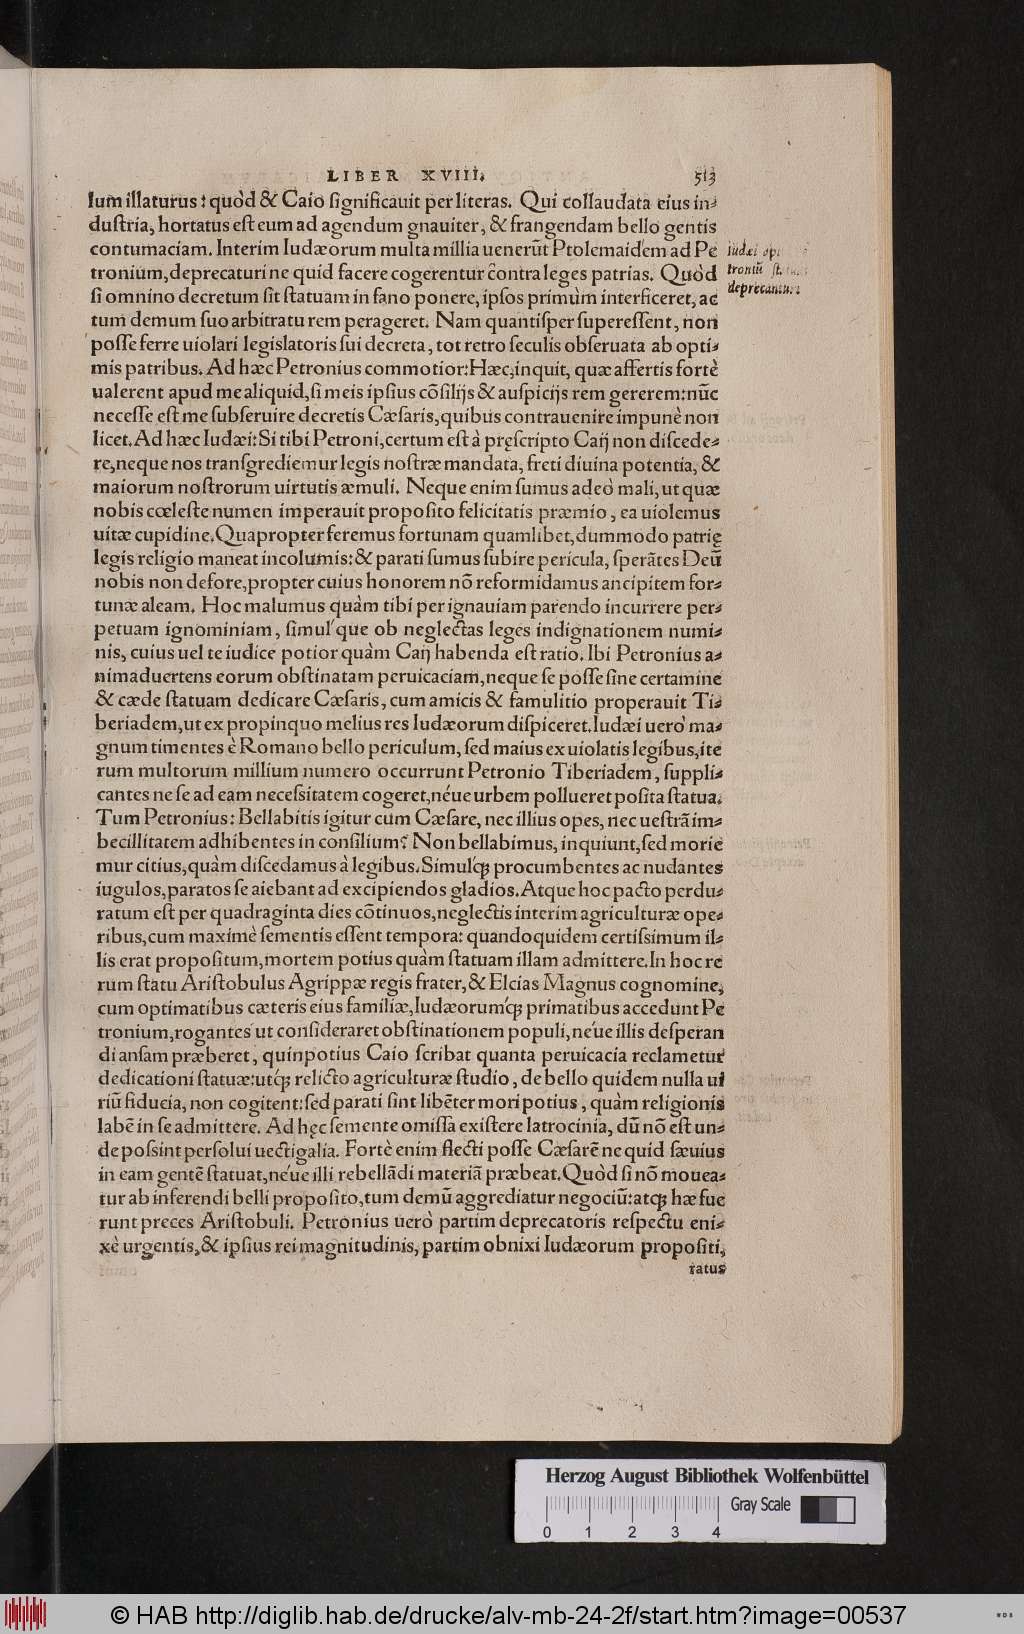 LIBER XVIII. 513
lum illaturus: quòd & Caio ſignificauit per literas. Qui collaudata eius in-
duſtria, hortatus eſt eum ad agendum gnauiter, & frangendam bello gentis
contumaciam. Interim Iudæorum multa millia uenerūt Ptolemaidem ad Pe
tronium, deprecaturi ne quid facere cogerentur cōntra leges patrias. Quòd
ſi omnino decretum ſit ſtatuam in fano ponere, ipſos primùm interficeret, ac
tum demum ſuo arbitratu rem perageret. Nam quantiſper ſupereſſent, non
poſſe ferre uiolari legislatoris ſui decreta, tot retro ſeculis obſeruata ab opti-
mis patribus. Ad hæc Petronius commotior: Hæc, inquit, quæ affertis fortè
ualerent apud me aliquid, ſi meis ipſius cōſilijs & auſpicijs rem gererem: nūc
neceſſe eſt me ſubſeruire decretis Cæſaris, quibus contrauenire impunè non
licet. Ad hæc Iudæi: Si tibi Petroni, certum eſt à pręſcripto Caij non diſcede-
re, neque nos tranſgrediemur legis noſtræ mandata, freti diuina potentia, &
maiorum noſtrorum uirtutis æmuli. Neque enim ſumus adeò mali, ut quæ
nobis cœleſte numen imperauit propoſito felicitatis præmio, ea uiolemus
uitæ cupidine. Quapropter feremus fortunam quamlibet, dummodo patrię
legis religio maneat incolumis: & parati ſumus ſubire pericula, ſperātes Deū
nobis non defore, propter cuius honorem nō reformidamus ancipitem for-
tunæ aleam. Hoc malumus quàm tibi per ignauiam parendo incurrere per-
petuam ignominiam, ſimul'que ob neglectas leges indignationem numi-
nis, cuius uel te iudice potior quàm Caij habenda eſt ratio. Ibi Petronius a-
nimaduertens eorum obſtinatam peruicaciam, neque ſe poſſe ſine certamine
& cæde ſtatuam dedicare Cæſaris, cum amicis & famulitio properauit Ti-
beriadem, ut ex propinquo melius res Iudæorum diſpiceret. Iudæi uerò ma-
gnum timentes è Romano bello periculum, ſed maius ex uiolatis legibus, ite
rum multorum millium numero occurrunt Petronio Tiberiadem, ſuppli-
cantes ne ſe ad eam neceſsitatem cogeret, néue urbem pollueret poſita ſtatua.
Tum Petronius: Bellabitis igitur cum Cæſare, nec illius opes, nec ueſtrā im-
becillitatem adhibentes in conſilium? Non bellabimus, inquiunt, ſed morie
mur citius, quàm diſcedamus à legibus. Simulq́; procumbentes ac nudantes
iugulos, paratos ſe aiebant ad excipiendos gladios. Atque hoc pacto perdu-
ratum eſt per quadraginta dies cōtinuos, neglectis interim agriculturæ ope-
ribus, cum maximè ſementis eſſent tempora: quandoquidem certiſsimum il-
lis erat propoſitum, mortem potius quàm ſtatuam illam admittere. In hoc re
rum ſtatu Ariſtobulus Agrippæ regis frater, & Elcias Magnus cognomine,
cum optimatibus cæteris eius familiæ, Iudæorumq́; primatibus accedunt Pe
tronium, rogantes ut conſideraret obſtinationem populi, néue illis deſperan
di anſam præberet, quin potius Caio ſcribat quanta peruicacia reclametur
dedicationi ſtatuæ: utq́; relicto agriculturæ ſtudio, de bello quidem nulla ui
riū fiducia, non cogitent: ſed parati ſint libēter mori potius, quàm religionis
labē in ſe admittere. Ad hęc ſemente omiſſa exiſtere latrocinia, dū nō eſt un-
de poſsint perſolui uectigalia. Fortè enim flecti poſſe Cæſarē ne quid ſæuius
in eam gentē ſtatuat, néue illi rebellādi materiā præbeat. Quòd ſi nō mouea-
tur ab inferendi belli propoſito, tum demū aggrediatur negociū: atq; hæ fue
runt preces Ariſtobuli. Petronius uerò partim deprecatoris reſpectu eni-
xè urgentis, & ipſius rei magnitudinis, partim obnixi Iudæorum propoſiti,
ratus
Iudæi
troniū
deprecantur
Herzog August Bibliothek Wolfenbüttel
Gray Scale
0 1 2 3 4
© HAB http://diglib.hab.de/drucke/alv-mb-24-2f/start.htm?image=00537